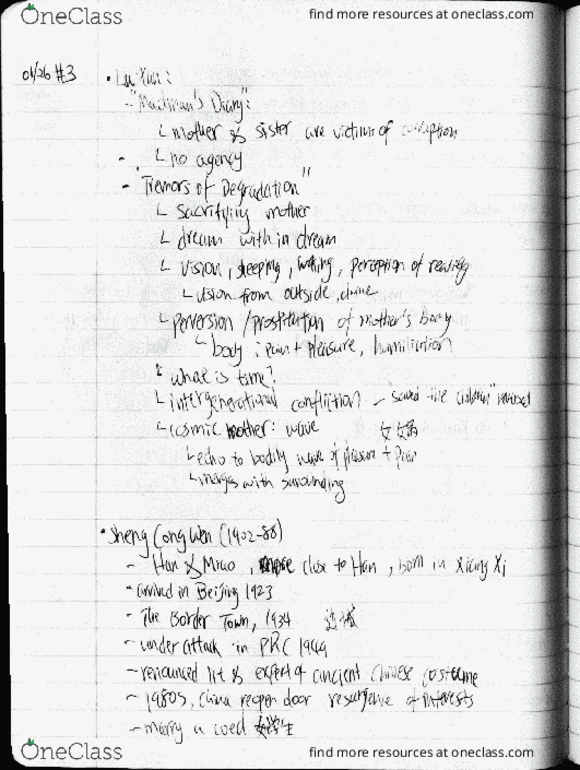 OneClass
find more resources at oneclass.com
01/26 #3
• Lu Xun:
- "Madman's Diary":
└ mother & sister are victims of
- └ no agency
- "Tremors of Degradation"
└ sacrifying mother
└ dream with in dream
└ vision, sleeping, waking, perception of reality
└ vision from outside, divine
└ perversion / prostitution of mother's body
└ body: pain + pleasure, humiliation
└ what is time?
└ intergenerational confliction - "saved the children" reversed
└ cosmic mother: wave 女娲
└ echo to bodily wave of pleasure + pain
└ merges with surrounding
• Sheng Cong Wen (1902-88)
- Han & Miao, more close to Han, born in Xiang Xi
- arrived in Beijing 1923
- The Border Town, 1934 边城
- under attack in PRC 1949
- renounced lit & expert of ancient Chinese costume
- 1980s, China reopen door resurgence of interests
- marry a coed 女学生
OneClass
find more resources at oneclass.com